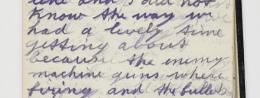 time and I did not
know the way we
had a lively time
getting about
because the enemy
machine guns where
firing and the bullets